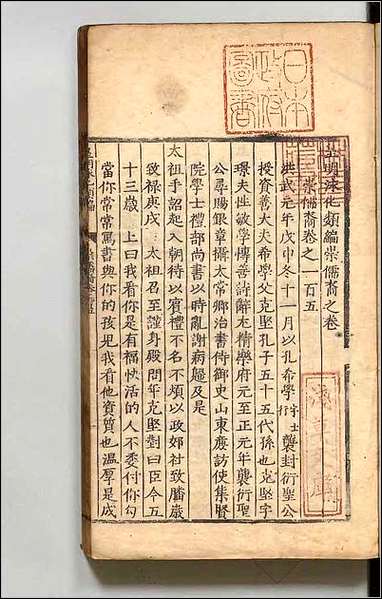 日本
政府
圖書
皇明泳化類編崇儒裔之卷
崇儒裔卷之一百五
洪武元年戊申冬十一月以孔希學字士行襲封衍聖公
授資善大夫希學父克堅孔子五十五代孫也克堅字
璟夫性敏學博善詩辭尤精樂府元至正元年襲衍聖
公尋賜銀章攝太常鄉治書侍御史山東廉訪使集賢
院學士禮部尚書以時亂謝病歸及是
太祖手詔起入朝待以賓禮不名不煩以政郊社致膰歲
致祿庚戌 太祖召至謹身殿問年克堅對曰臣今五
十三歲 上曰我看你是有福快活的人不委付你勾
當你常常寫書與你的孩兒我看他資質也溫厚是成